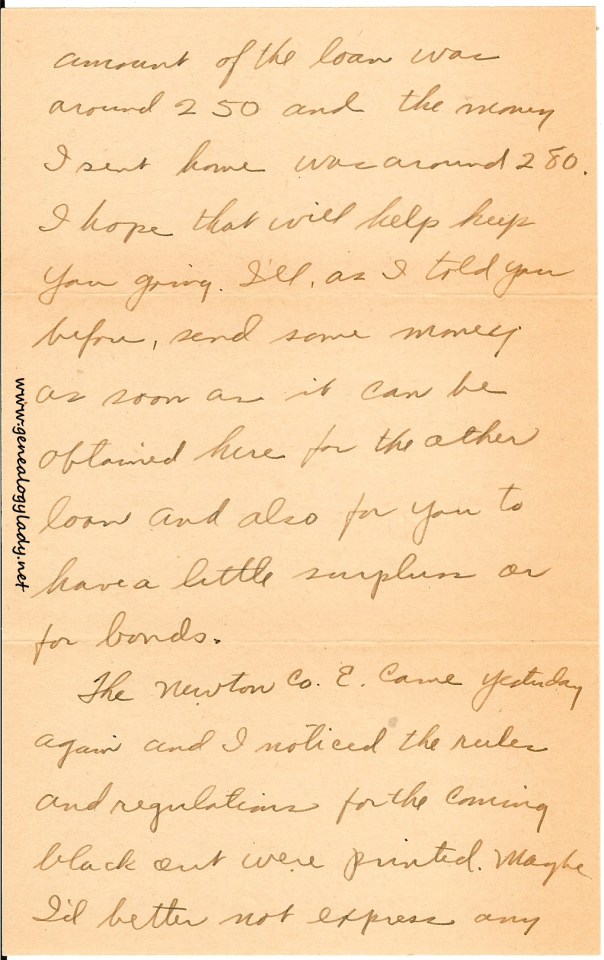 amount of the loan was
around 250 and the money
I sent home was around 280.
I hope that will help keep
you going. I'll, as I told you
before, send some money
as soon as it can be
obtained here for the other
loan and also for you to
have a little surplus or
for bonds.
The Newton Co. E. came yesterday
again and I noticed the rules
and regulations for the coming
black out were printed. Maybe
I'd better not express any
www.genealogylady.net